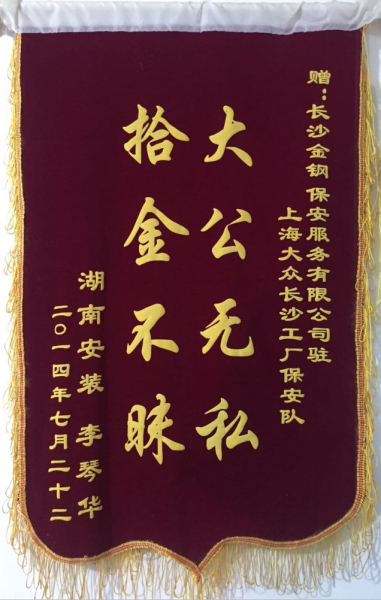 赠：长沙金钢保安服务有限公司驻
上海大众长沙工厂保安队
大公无私
拾金不昧
湖南安装 李琴华
二〇一四年七月二十二